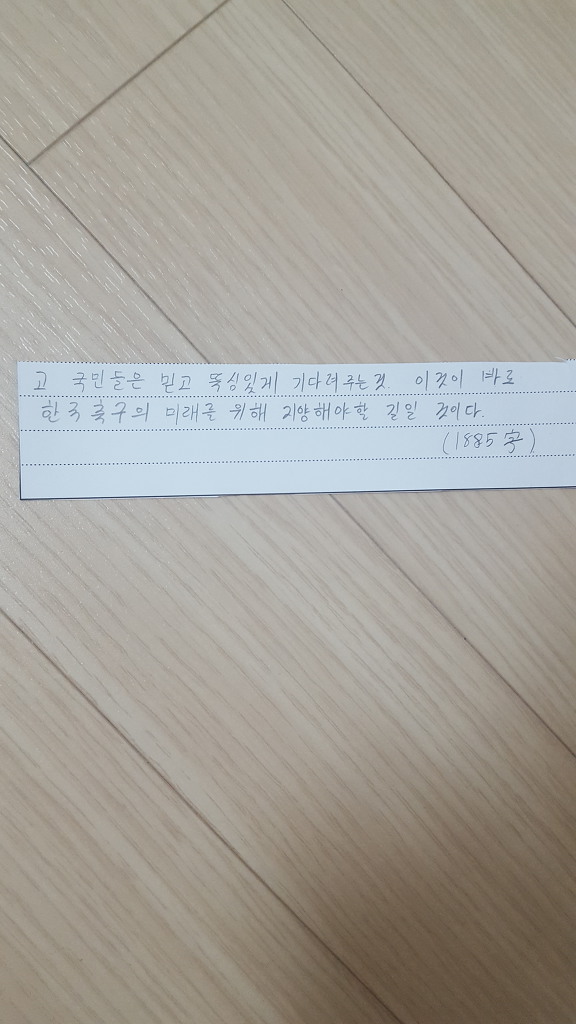 고 국민들은 믿고 뚝심있게 기다려주는것. 이것이 바로
한국축구의 미래를 위해 지양해야할 길일 것이다.
(1885字)